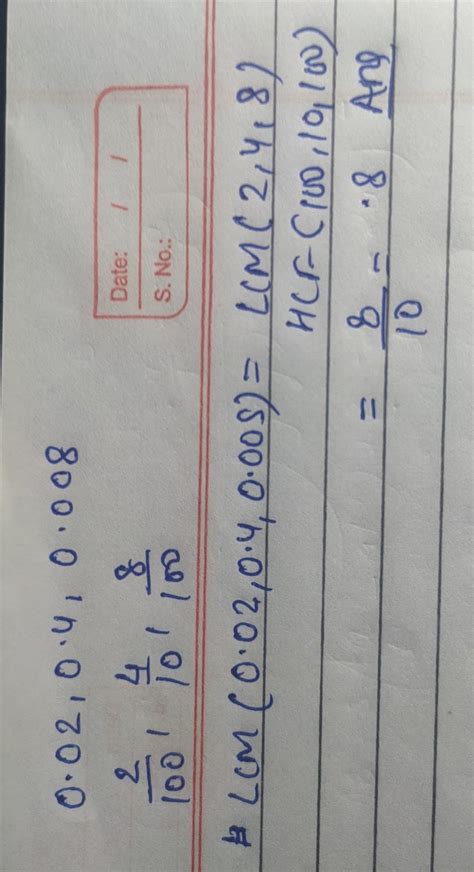 0.02, 0.4, 0.008
2/100, 4/10, 8/100
Date: / /
S. No.:
# LCM (0.02, 0.4, 0.005) = LCM (2, 4, 8)
HCF (100, 10, 100)
= 8/10 - .8 Ang